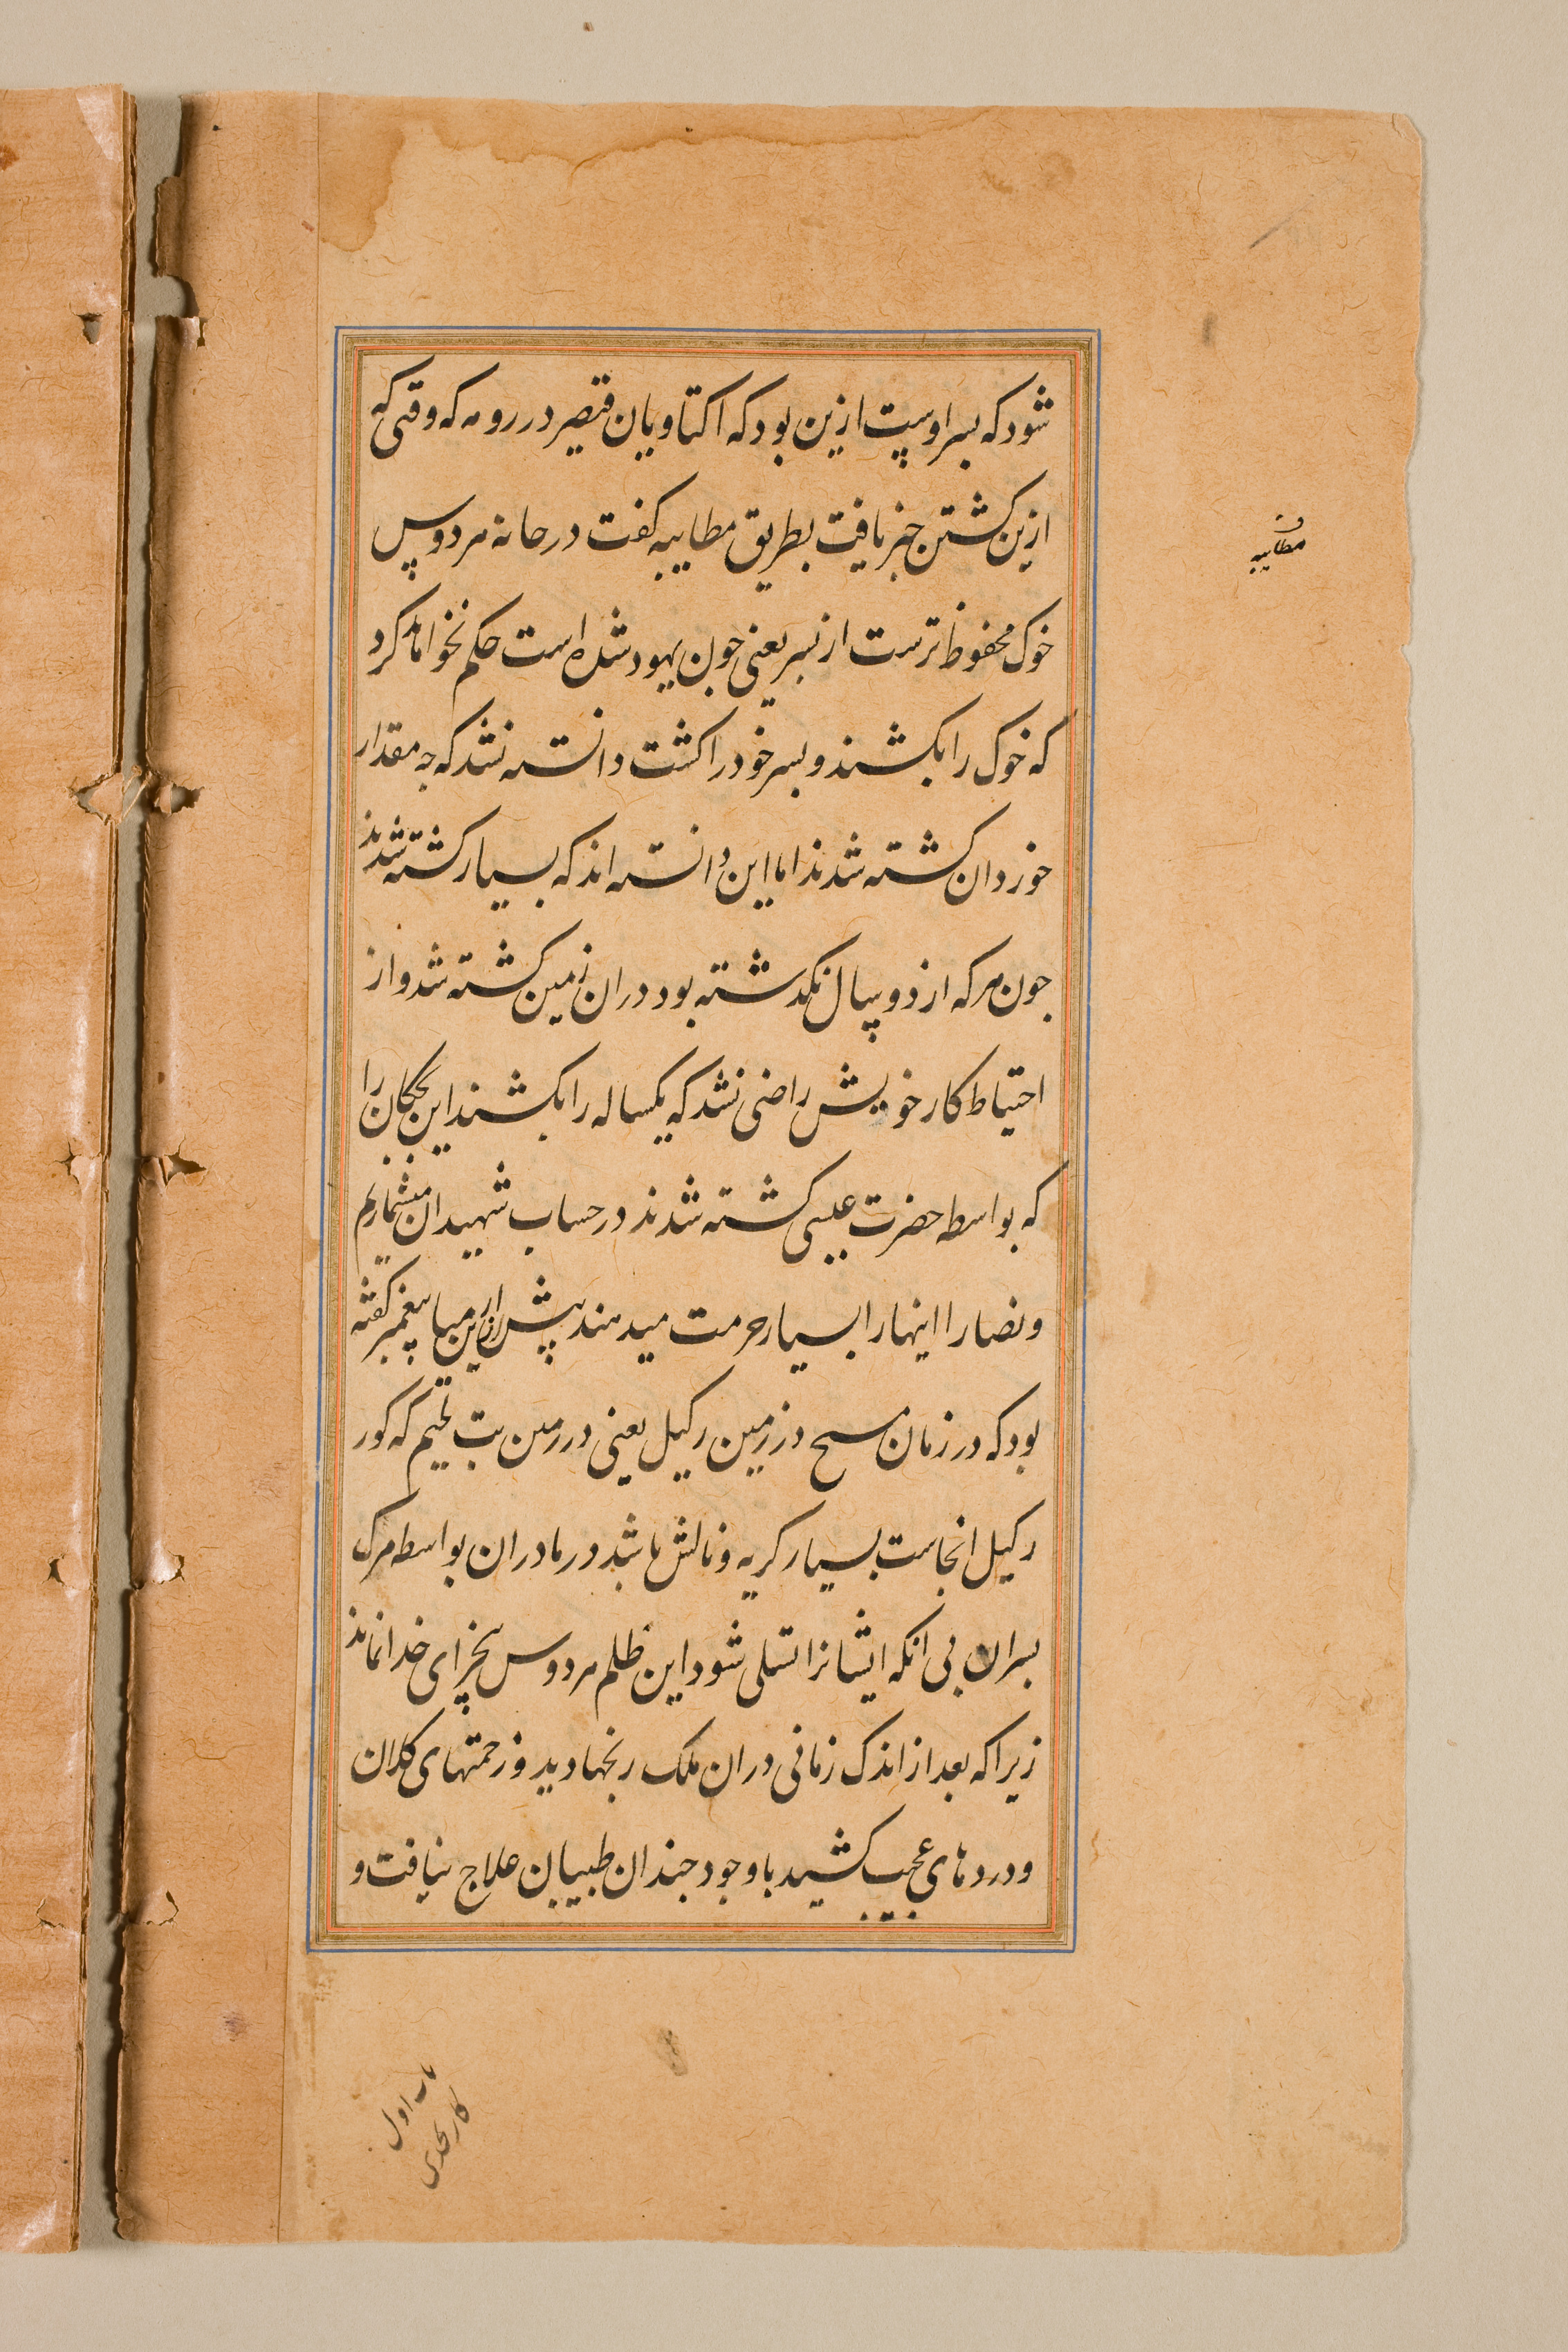 شود که بسر اوست ازین بود که اکتاویان قیصر در رومه که وقتی که
ازین کشتن خبر یافت بطریق مطایبه کفت در خانه هردوس
خوک محفوظ ترست از بسر یعنی جون یهود شده است حکم نخواهد کرد
که خوک را بکشند و بسر خود را کشت دانسته نشد که جه مقدار
خوردان کشته شدند اما این دانسته اند که بسیار کشته شدند
جون هر که از دو سال نکذشته بود دران زمین کشته شد و از
احتیاط کار خویش راضی نشد که یکساله را بکشند این بجکان را
که بواسطه حضرت عیسی کشته شدند در حساب شهیدان میشماریم
و نصارا اینها را بسیار حرمت میدهند پیش ازین میا پیغمبر کفته
بود که در زمان مسیح در زمین رکیل یعنی در زمین بت لحیم که کور
رکیل انجاست بسیار کریه و نالش باشد در مادران بواسطه مرک
بسران بی انکه ایشانرا تسلی شود این ظلم هردوس بیجزای خدا نماند
زیرا که بعد از اندک زمانی دران ملک رنجها دید و زحمتهای کلان
و دردهای عجیب کشید با وجود جندان طبیبان علاج نیافت و
مطایبه
باب اول